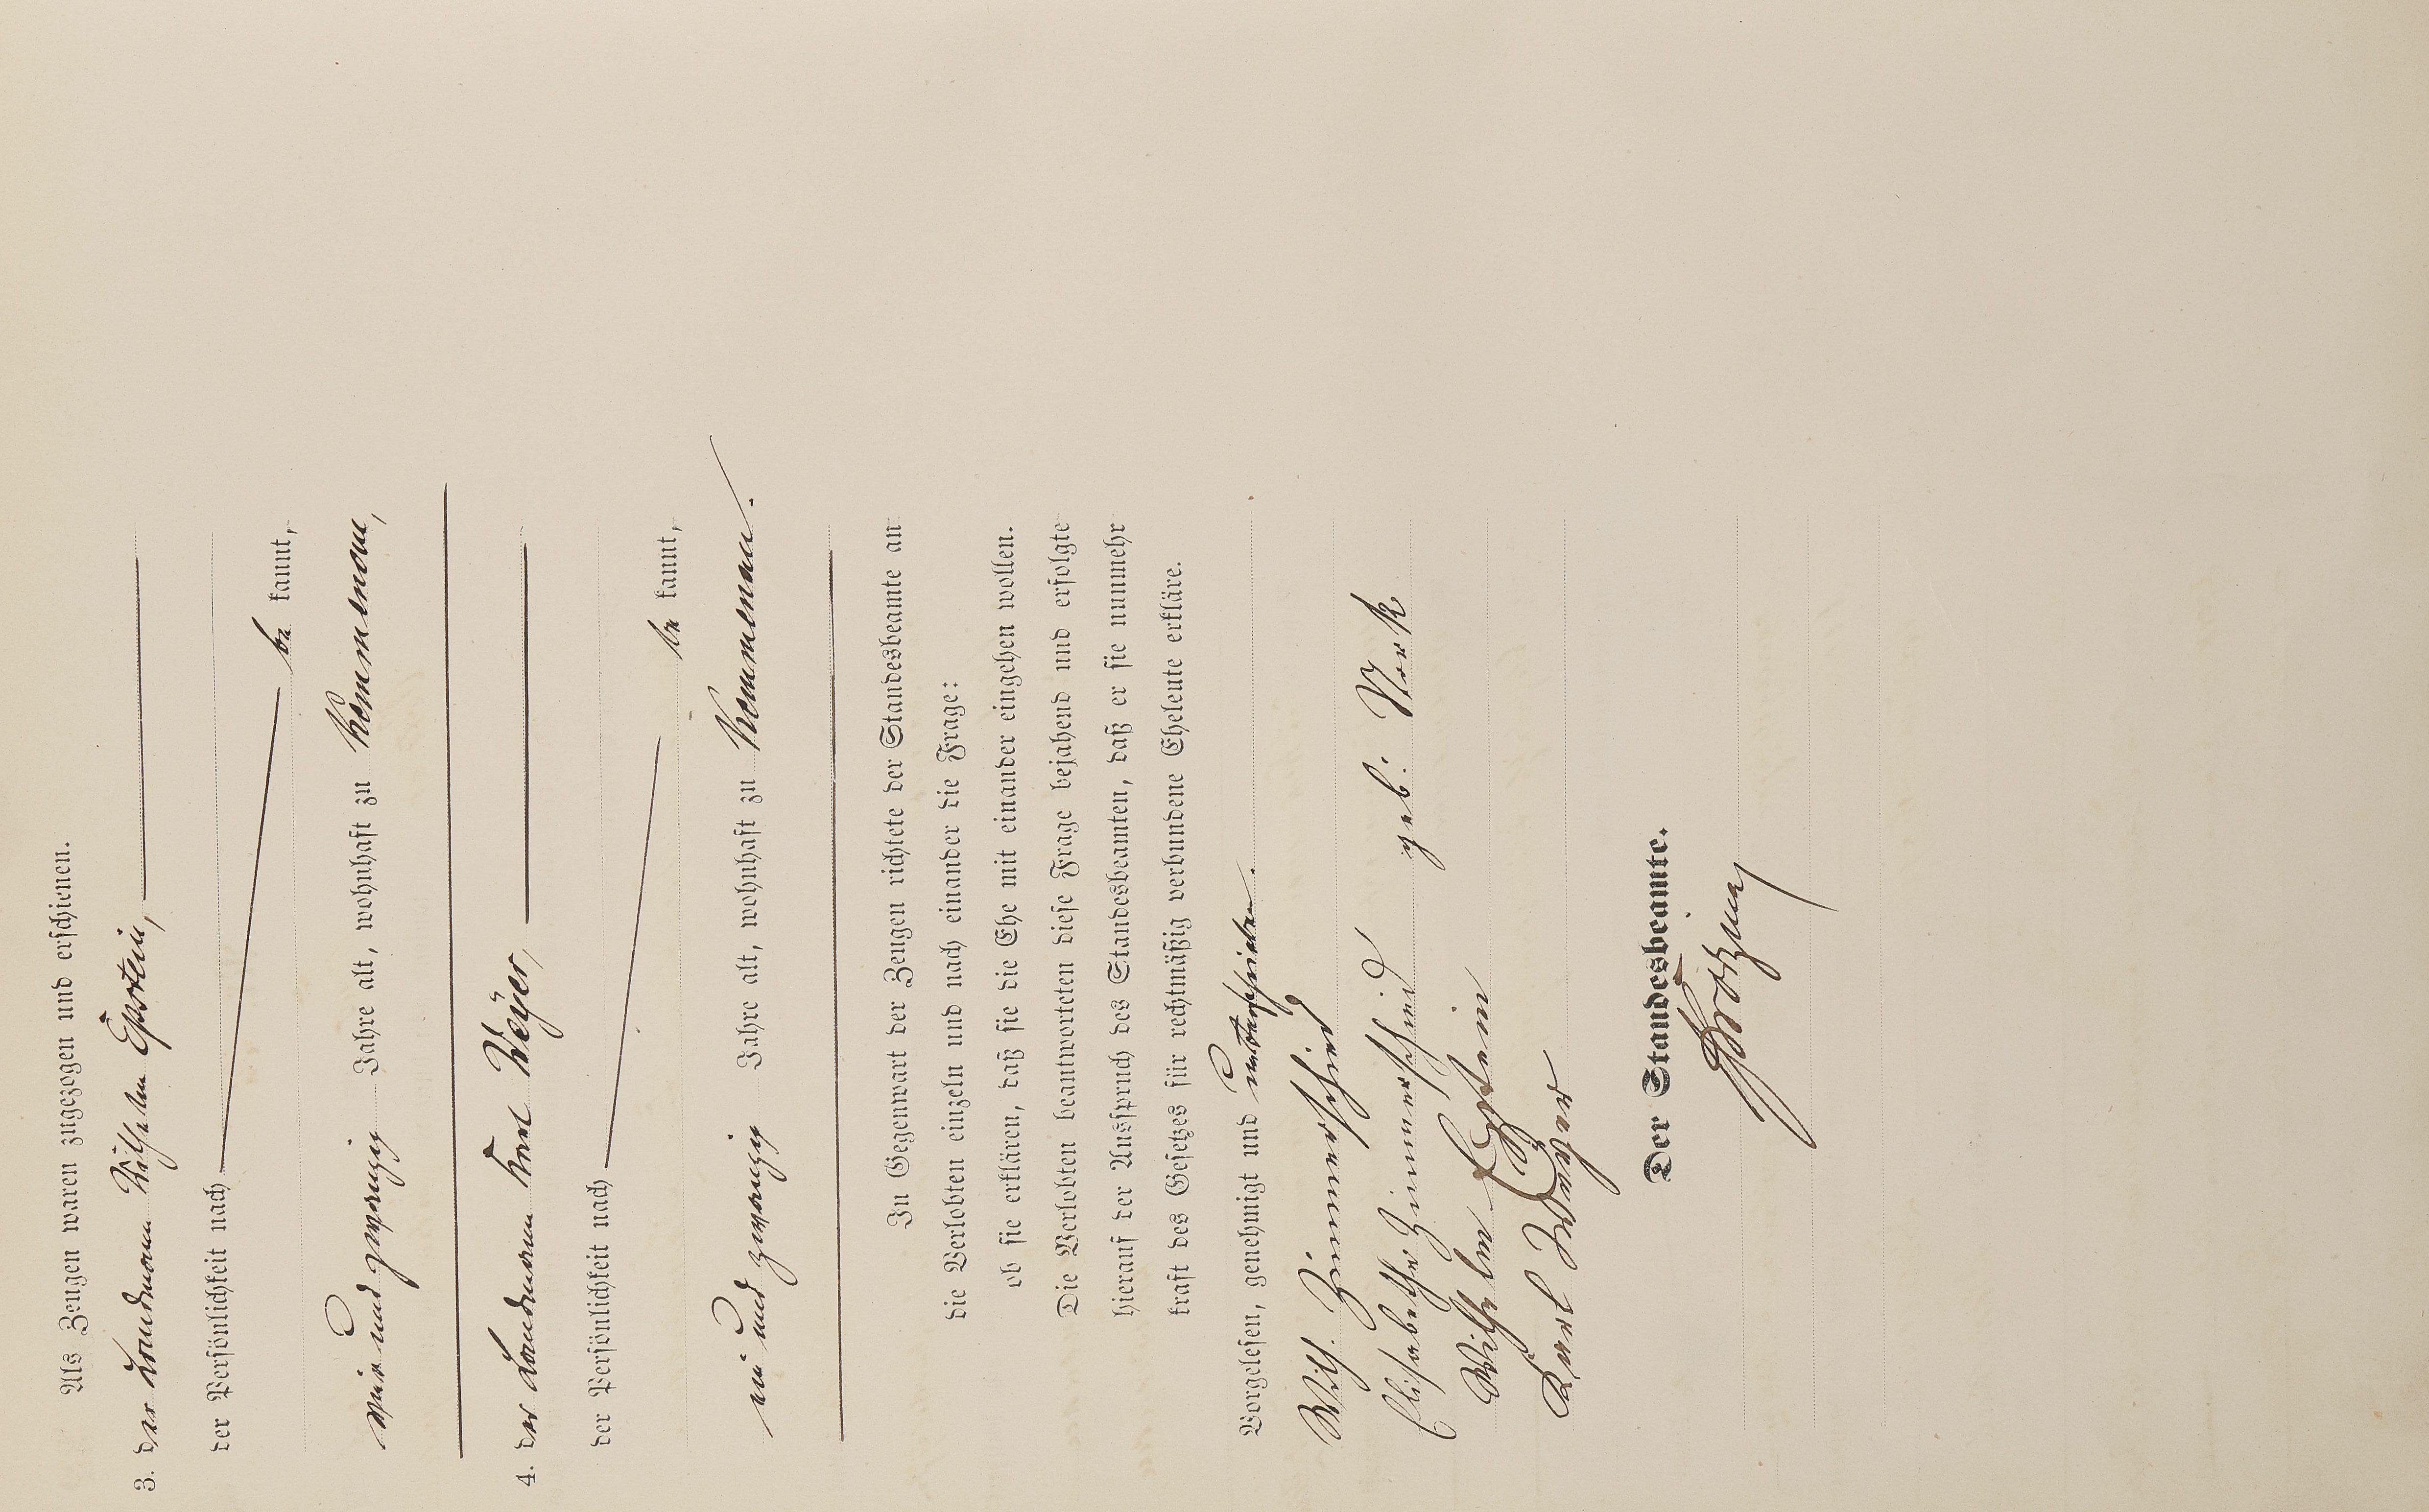 Als Zeugen waren zugezogen und erschienen.
3. der Landmann Wilhelm Epstein,
der Persönlichkeit nach
be kannt,
vier und zwanzig Jahre alt, wohnhaft zu
4. der Landmann Karl Weÿer,
der Persönlichkeit nach
be kannt,
ein und zwanzig Jahre alt, wohnhaft zu
In Gegenwart der Zeugen richtete der Standesbeamte an
die Verlobten einzeln und nach einander die Frage:
ob sie erklären, daß sie die Ehe mit einander eingehen wollen.
Die Verlobten beantworteten diese Frage bejahend und erfolgte
hierauf der Ausspruch des Standesbeamten, daß er sie nunmehr
kraft des Gesetzes für rechtmäßig verbundene Eheleute erkläre.
Vorgelesen, genehmigt und unterschrieben.
Wilh. Zimmerschied
Elisabethe Zimmerschied geb:
Wilhelm Epstein
Karl Weyer
Der Standesbeamte.